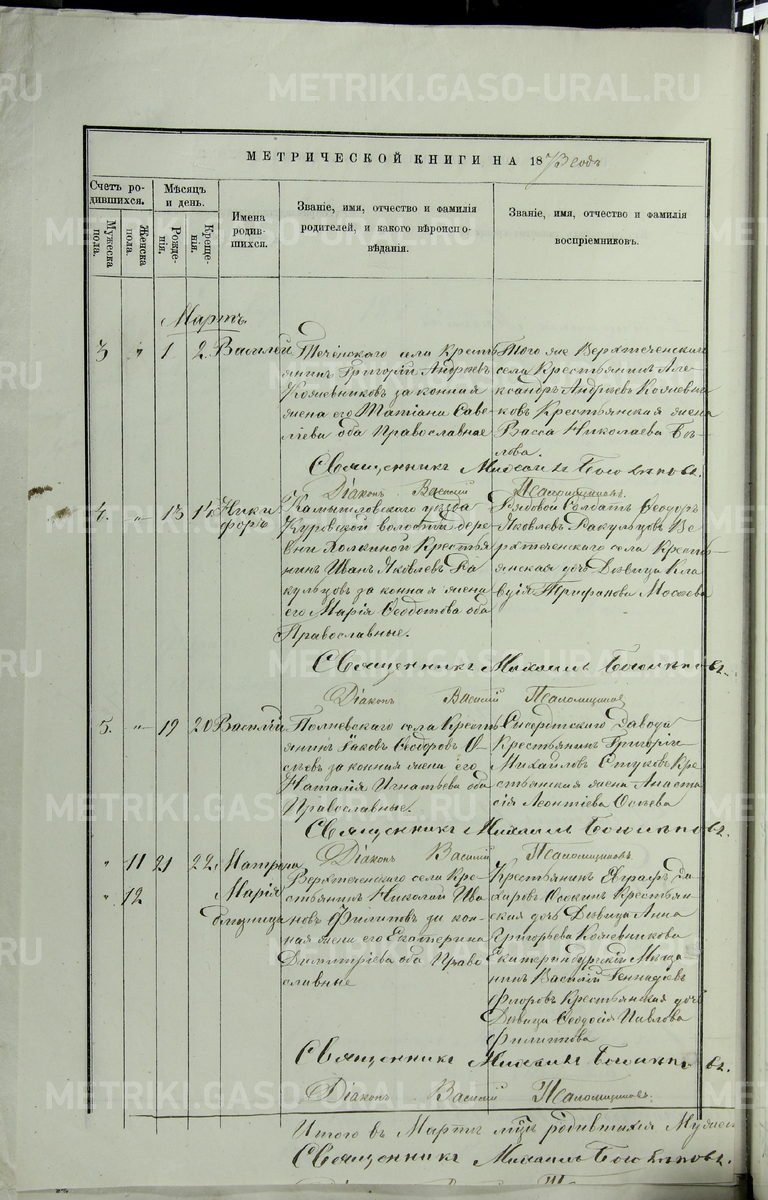 METRIKI.GASO-URAL.RU
МЕТРИЧЕСКОЙ КНИГИ НА 1873 годъ
Счетъ ро-
дившихся.
Мужеска
пола.
Женска
пола.
Мѣсяцъ
и день.
Рожде-
нія.
Креще-
нія.
Имена
родив-
шихся.
Званіе, имя, отчество и фамилія
родителей, и какого вѣроиспо-
вѣданія.
Званіе, имя, отчество и фамилія
воспріемниковъ.
Мартъ
3 „ 1 2. Василій
Теченскаго села Кресть
янинъ Григорій Андреевъ
Кожевниковъ законная
жена его Татіана Саве
ліева оба Православные
Того же Верхтеченскаго
села Крестьянинъ Але-
ксандръ Андреевъ Кожевни
ковъ Крестьянская жена
Васса Николаева
Священникъ Михаилъ
Діаконъ Василій
4. „ 13 14 Ники
форъ
Камышловскаго уѣзда
Куровской волости дере
вни Крестья
нинъ Иванъ Яковлевъ Ра
кульцовъ законная жена
его Марія Ѳеодотова оба
Православные.
Рядовой Солдатъ Ѳеодоръ
Яковлевъ Ракульцовъ Ве
рхтеченскаго села Кресть-
янская дочь Дѣвица Кла
вдія Трифонова
Священникъ Михаилъ
Діаконъ Василій
5. „ 19 20 Василій
Полневскаго села Кресть
янинъ Іаковъ Ѳеодоровъ
законная жена его
Наталія Игнатьева оба
Православные.
Сысертскаго Завода
Крестьянинъ Григорій
Михайловъ Стуковъ Кре
стьянская жена Анаста
сія Леонтіева
Священникъ Михаилъ
Діаконъ Василій
„ 11 21 22. Матрона
„ 12 Марія
близнецы
Верхтеченскаго села Кре-
стьянинъ Николай Ива
новъ Филиповъ закон-
ная жена его Екатерина
Димитріева оба Право
славные
Крестьянинъ Евграфъ За
харовъ Осокинъ Крестьян-
ская дочь Дѣвица Анна
Григорьева Кожевникова
Екатеринбургскій Мѣща
нинъ Василій Геннадіевъ
Крестьянская дочь
Дѣвица Ѳеодосія Павлова
Филиппова
Священникъ Михаилъ
Діаконъ Василій
Итого въ Мартѣ мцѣ родившихся Мужеск
Священникъ Михаилъ